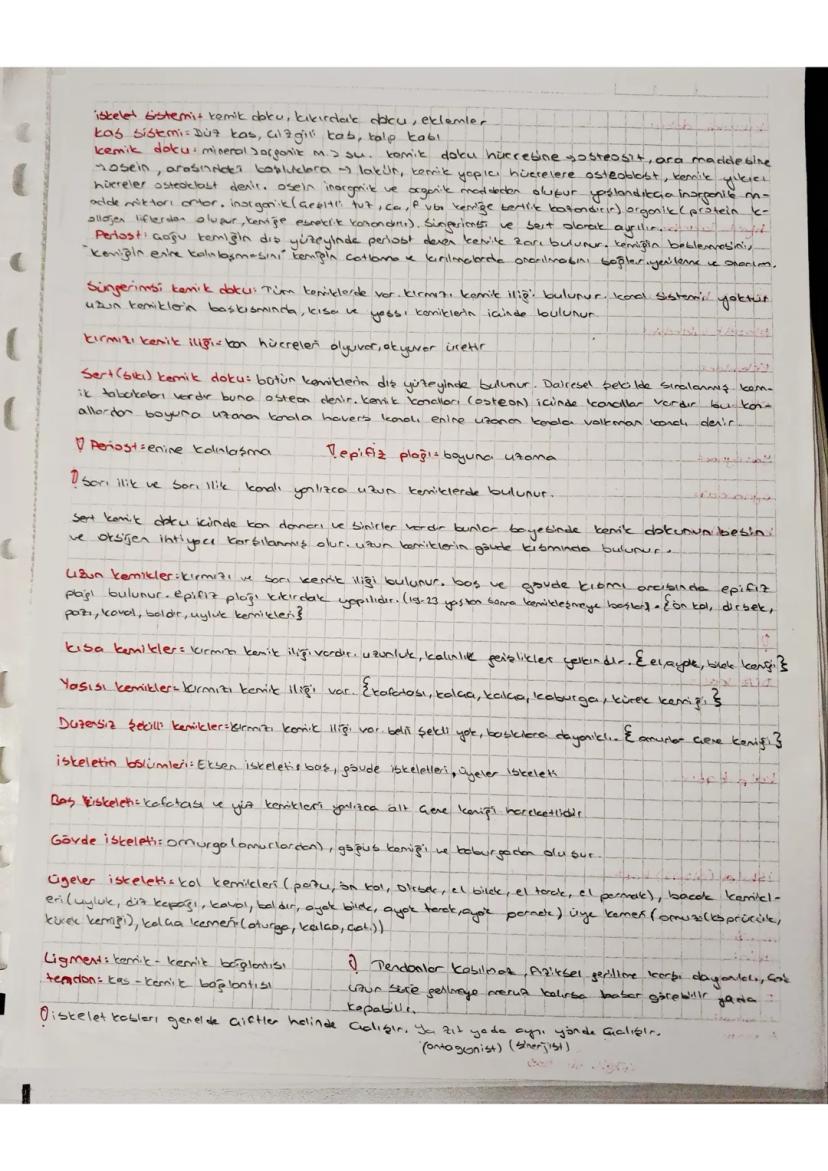 iskelet sistemi: kemik doku, kıkırdak doku, eklemler
kas sistemi: Düz kas, çizgili kas, kalp kası
kemik doku: mineral > organik m. > su. kemik doku hücresine → osteosit, ara maddesine
→ osein, arasındaki boşluklara → lakün, kemik yapıcı hücrelere osteoblast, kemik yıkıcı
hücreler osteoklast denir. osein inorganik ve organik maddeden oluşur yaşlandıkça inorganik m-
adde miktarı artar. inorganik (çeşitli tuz, ca, P vbs kemiğe sertlik kazandırır) organik (protein k-
ollajen liflerden oluşur, kemiğe esneklik kazandırır). Süngerimsi ve sert olarak ayrılır.
Periost: çoğu kemiğin dış yüzeyinde periost denen kemik zarı bulunur. kemiğin beslenmesini,
"kemiğin enine kalınlaşmasını" kemiğin çatlama ve kırılmalarda onarılmasını sağlar. yenileme ve onarım.
Süngerimsi kemik doku: Tüm kemiklerde var. kırmızı kemik iliği bulunur. kanal sistemi yoktur
uzun kemiklerin baş kısmında, kısa ve yassı kemiklerin içinde bulunur
kırmızı kemik iliği = kan hücreleri alyuvar, akyuvar üretir
Sert (sıkı) kemik doku: bütün kemiklerin dış yüzeyinde bulunur. Dairesel şekilde sıralanmış kem-
ik tabakaları vardır buna osteon denir. kemik kanalları (osteon) içinde kanallar vardır bu kan-
allardan boyuna uzanan kanala havers kanalı enine uzanan kanala volkman kanalı denir.
Periost = enine kalınlaşma epifiz plağı = boyuna uzama
sarı ilik ve sarı ilik kanalı yanlızca uzun kemiklerde bulunur.
sert kemik doku içinde kan damarı ve sinirler vardır bunlar sayesinde kemik dokunun besin
ve oksijen ihtiyacı karşılanmış olur. uzun kemiklerin gövde kısmında bulunur.
Uzun kemikler: kırmızı ve sarı kemik iliği bulunur. baş ve gövde kısmı arasında epifiz
plağı bulunur. epifiz plağı kıkırdak yapılıdır. (19-23 yaştan sonra kemikleşmeye başlar) = {ön kol, dirsek,
pazı, kaval, baldır, uyluk kemikleri}
kısa kemikler = kırmızı kemik iliği vardır. uzunluk, kalınlık genişlikleri yakındır. {el, ayak, bilek kemiği}
Yassı kemikler = kırmızı kemik iliği var. {kafatası, kalça, kalça, kaburga, kürek kemiği}
Düzensiz Şekilli kemikler: kırmızı kemik iliği var. belli şekli yok, basıklara dayanıklı. {omurlar çene kemiği}
iskeletin bölümleri: Eksen iskeleti: baş, gövde iskeletleri, üyeler iskeleti
Baş iskeleti: kafatası ve yüz kemikleri yanlızca alt çene kemiği hareketlidir
Gövde iskeleti: omurga (omurlardan), göğüs kemiği ve kaburgadan oluşur.
Üyeler iskeleti: kol kemikleri (pazu, ön kol, Dirsek, el bilek, el tarak, el parmak), bacak kemikl-
eri (uyluk, diz kapağı, kaval, baldır, ayak bilek, ayak tarak, ayak parmak) üye kemeri (omuz (köprücük,
kürek kemiği), kalça kemeri (oturga, kalça, çatı))
Ligment: kemik - kemik bağlantısı
tendon: kas - kemik bağlantısı
Tendonlar kasılmaz, fiziksel gerilime karşı dayanıklı, çok
uzun süre gerilmeye maruz kalırsa hasar görebilir yada
kopabilir.
iskelet kasları genelde çiftler halinde çalışır. ya zıt yada aynı yönde çalışır.
(antagonist) (sinerjist)